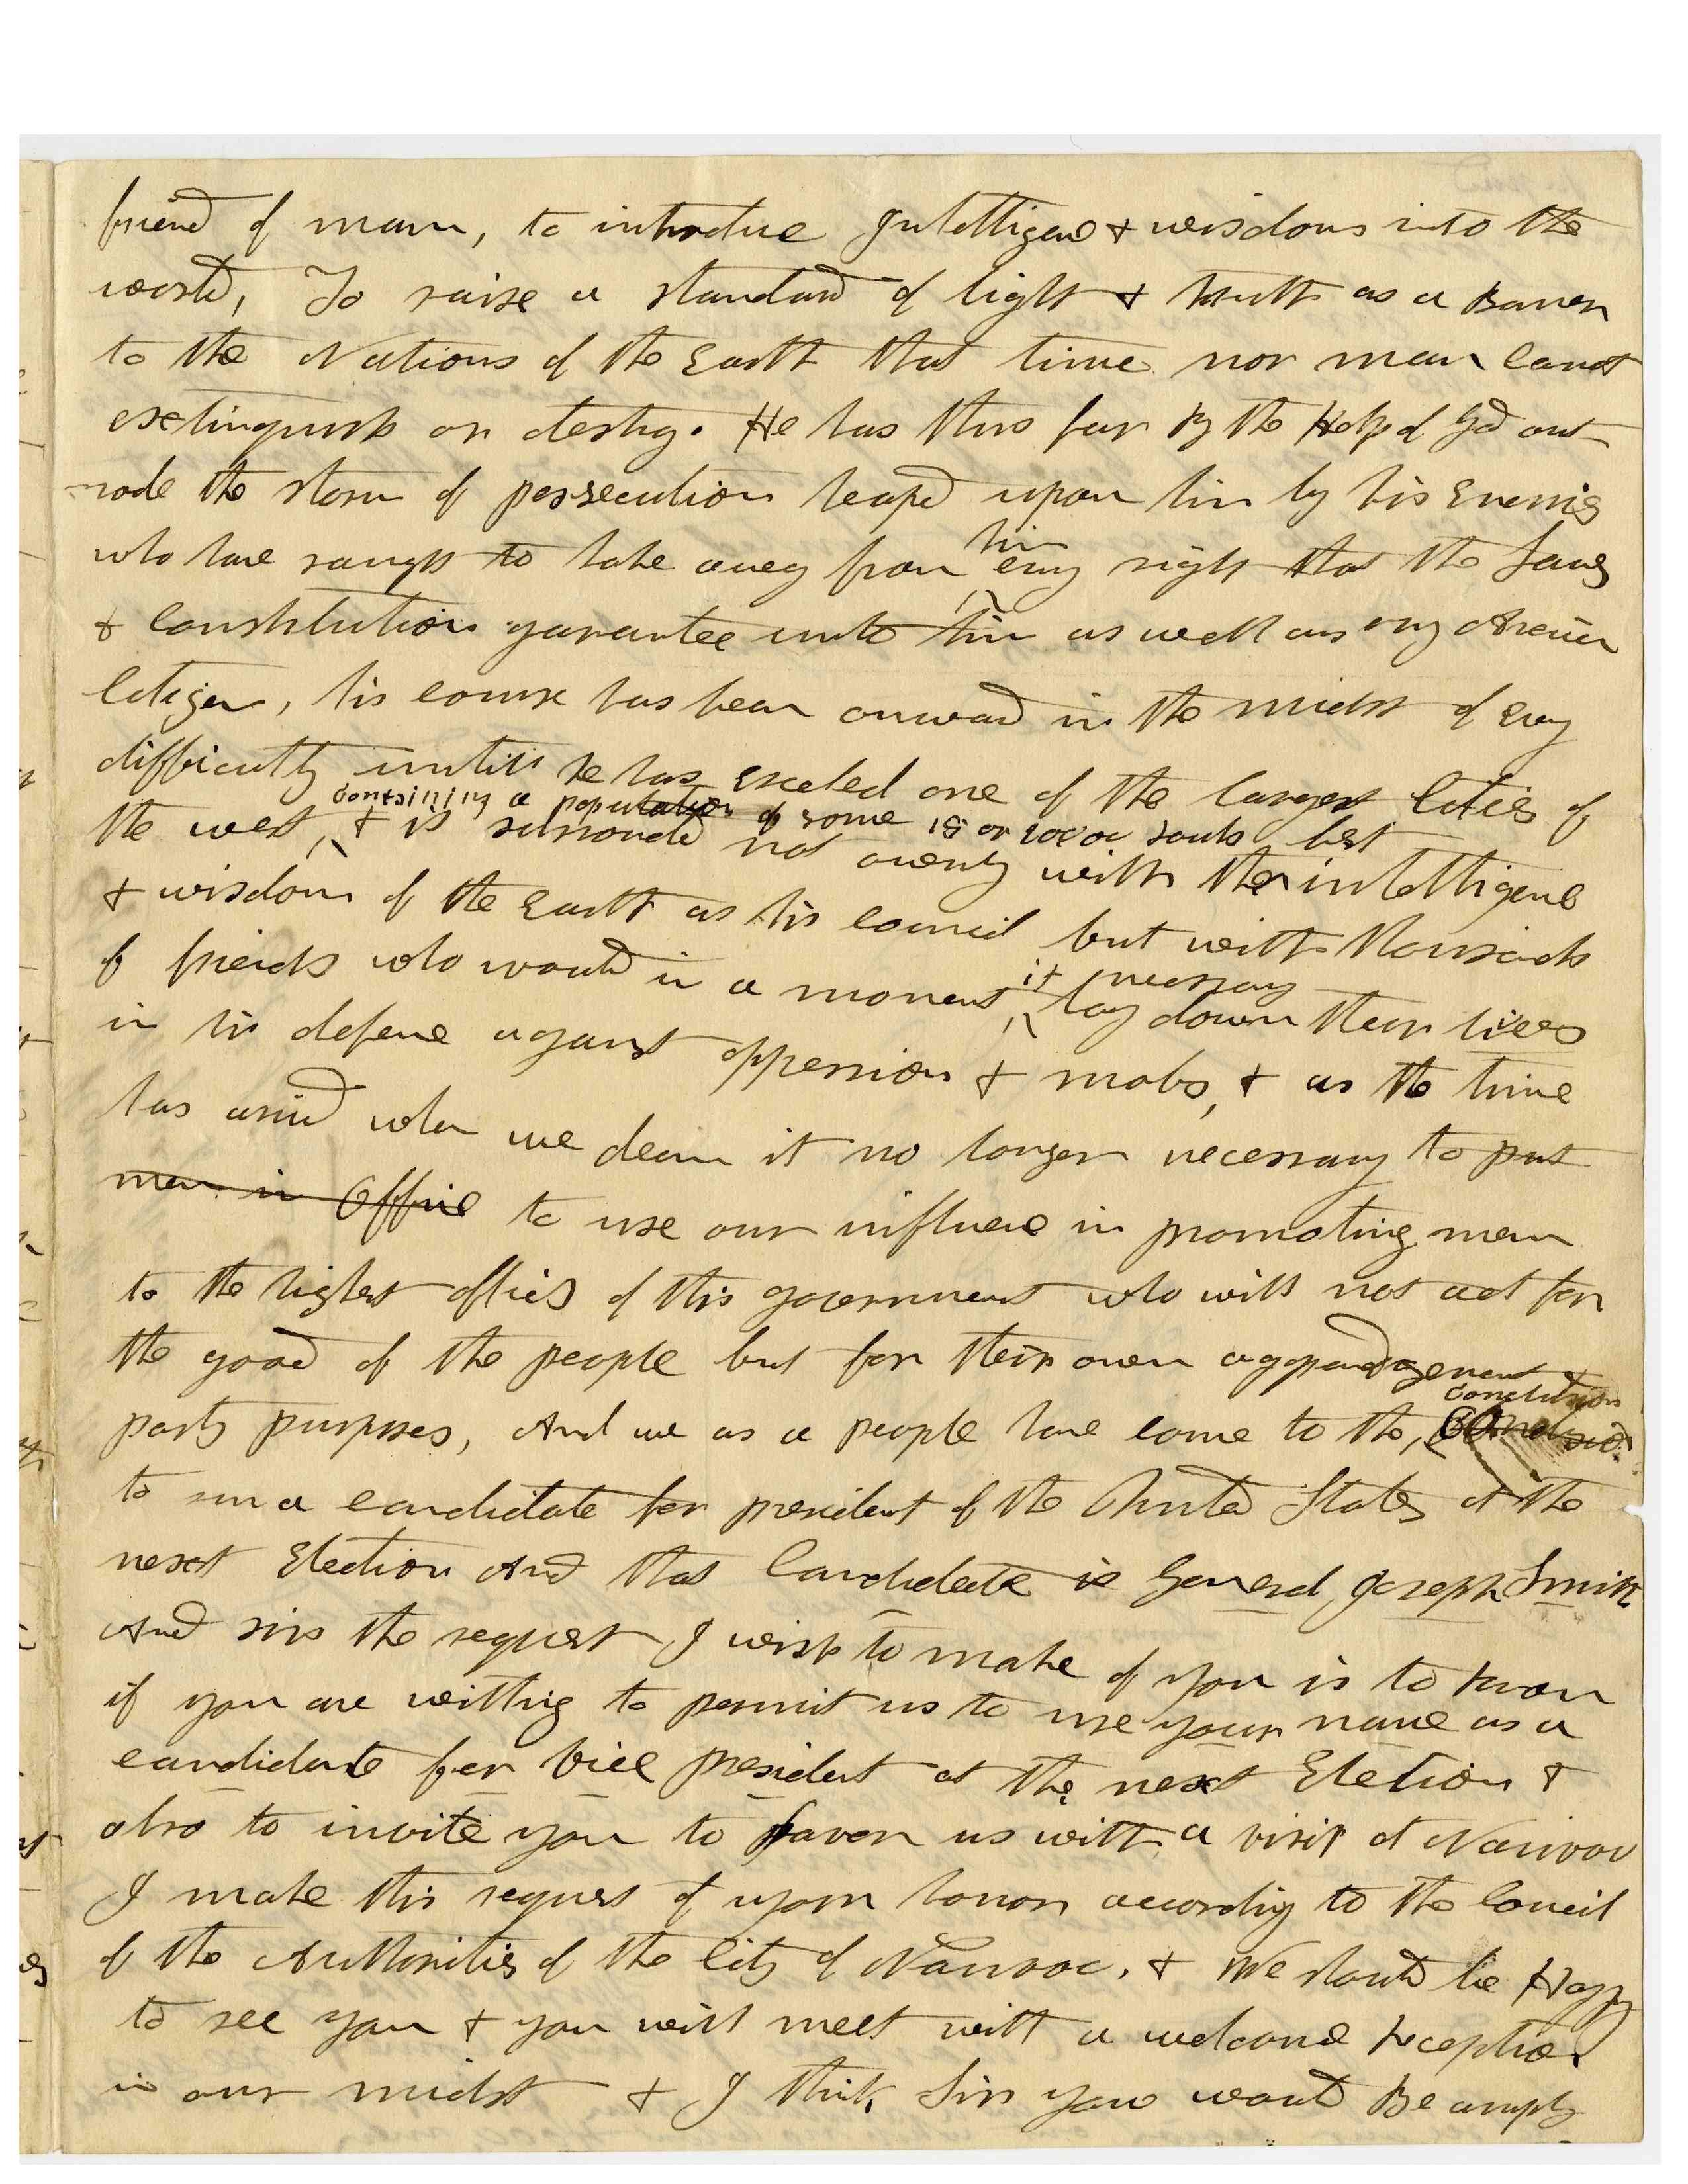 friend of man, to introduce Intelligence & wisdom into the
world, To raise a standard of light & truth as a Banner
to the Nations of the Earth that time nor man cannot
extinguish or destroy. He has thus far By the Help of God out
rode the storm of perssecution heaped upon him by his Enemies
who have saught to take away from ^him^ evry right that the Laws
& Constitution garantee unto him as well as any American
Citizen, his course has been onward in the midst of Evry
difficulty untill he has Erected one of the largest Cities of
the west, ^containing a population of some 15 or 20000 souls^ & is surrounded not ownly with the best intelligence
& wisdom of the Earth as his council but with thousands
of friends who would in a moment ^if necessary^ lay down their lives
in his defence against oppression & mobs, & as the time
has arived when we deem it no longer necessary to put
~~men in Office~~ to use our influence in promoting men
to the highest offices of this government who will not act for
the good of the people but for their own aggrandagement &
party purposes, And we as a people have come to the, ^conclusion^
to run a candidate for president of the United States at the
next Election And that Candidate is General Joseph Smith
And sir the request I wish to make of you is to know
if you are willing to permit us to use your name as a
candidate for Vice president at the next Election &
also to invite you to favor us with a visit at Nauvoo
I make this request of your honor according to the Council
of the Authorities of the City of Nauvoo, & We should be Happy
to see you & you will meet with a welcome reception
in our midst & I think Sir you would Be amply